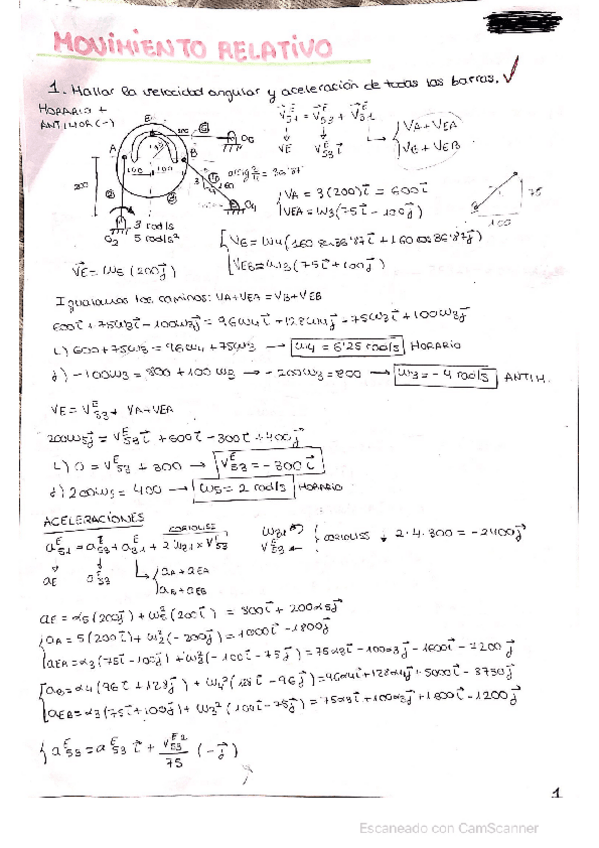 MOVIMIENTO RELATIVO
1. Hallar la velocidad angular y aceleración de todas las barras. ✓
HORARIO +
ANTIHOR (-)
A
B
E
100
100
200
O₂
O₄
3 rad/s
5 rad/s²
75
100
VE = ω5 (200j)
VA + VEA
VB + VEB
VA = 3(200)i = 600i
VEA = ω3(75i - 100j)
VB = ω4(160 sen 36'87i + 160 cos 36'87j)
VEB = ω3(75i + 100j)
Igualamos los caminos: VA+VEA = VB+VEB
600i + 75ω3i - 100ω3j = 96ω4i + 128ω4j + 75ω3i + 100ω3j
i) 600 + 75ω3 = 96ω4 + 75ω3 → ω4 = 6'25 rad/s HORARIO
j) -100ω3 = 800 + 100ω3 → -200ω3 = 800 → ω3 = -4 rad/s ANTIH.
VE = V^E_53 + VA + VEA
200ω5j = V^E_53 i + 600i - 300i + 400j
i) 0 = V^E_53 + 300 → V^E_53 = -300i
j) 200ω5 = 400 → ω5 = 2 rad/s HORARIO
ACELERACIONES
CORIOLISS
a^E_51 = a^E_53 + a^E_31 + 2ω31 × V^E_53
aE
a^E_53
aA + aEA
aB + aEB
CORIOLISS ↓ 2·4·300 = -2400j
aE = α5(200j) + ω5²(200i) = 800i + 200α5j
aA = 5(200i) + ω2²(-200j) = 1000i - 1800j
aEA = α3(75i - 100j) + ω3²(-100i - 75j) = 75α3i - 100α3j - 1600i - 1200j
aB = α4(96i + 128j) + ω4²(128i - 96j) = 96α4i + 128α4j + 5000i - 3750j
aEB = α3(75i + 100j) + ω3²(100i - 75j) = 75α3i + 100α3j + 1600i - 1200j
a^E_53 = a^E_53 i + V^E2_53 / 75 (-j)
1
Escaneado con CamScanner